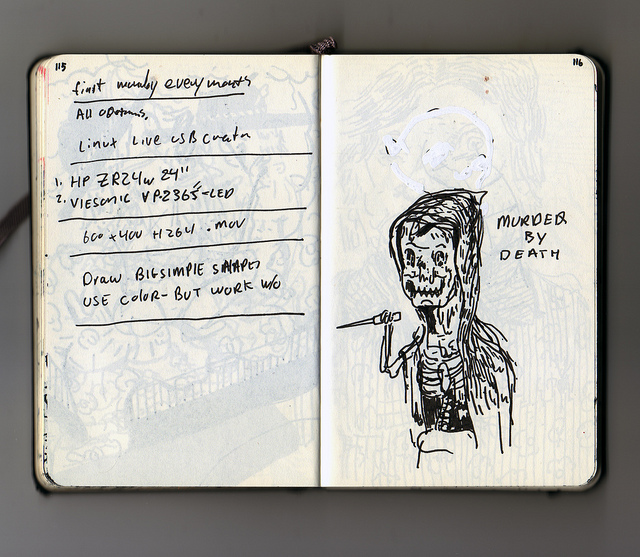 115
first monday every month
All
Linux Live USB Creator
1. HP ZR24w 24"
2. VIESONIC VP2365-LED
600 x 400 H264 .mov
Draw BIG SIMPLE SHAPES
USE COLOR - BUT WORK W/O
116
MURDER
BY
DEATH